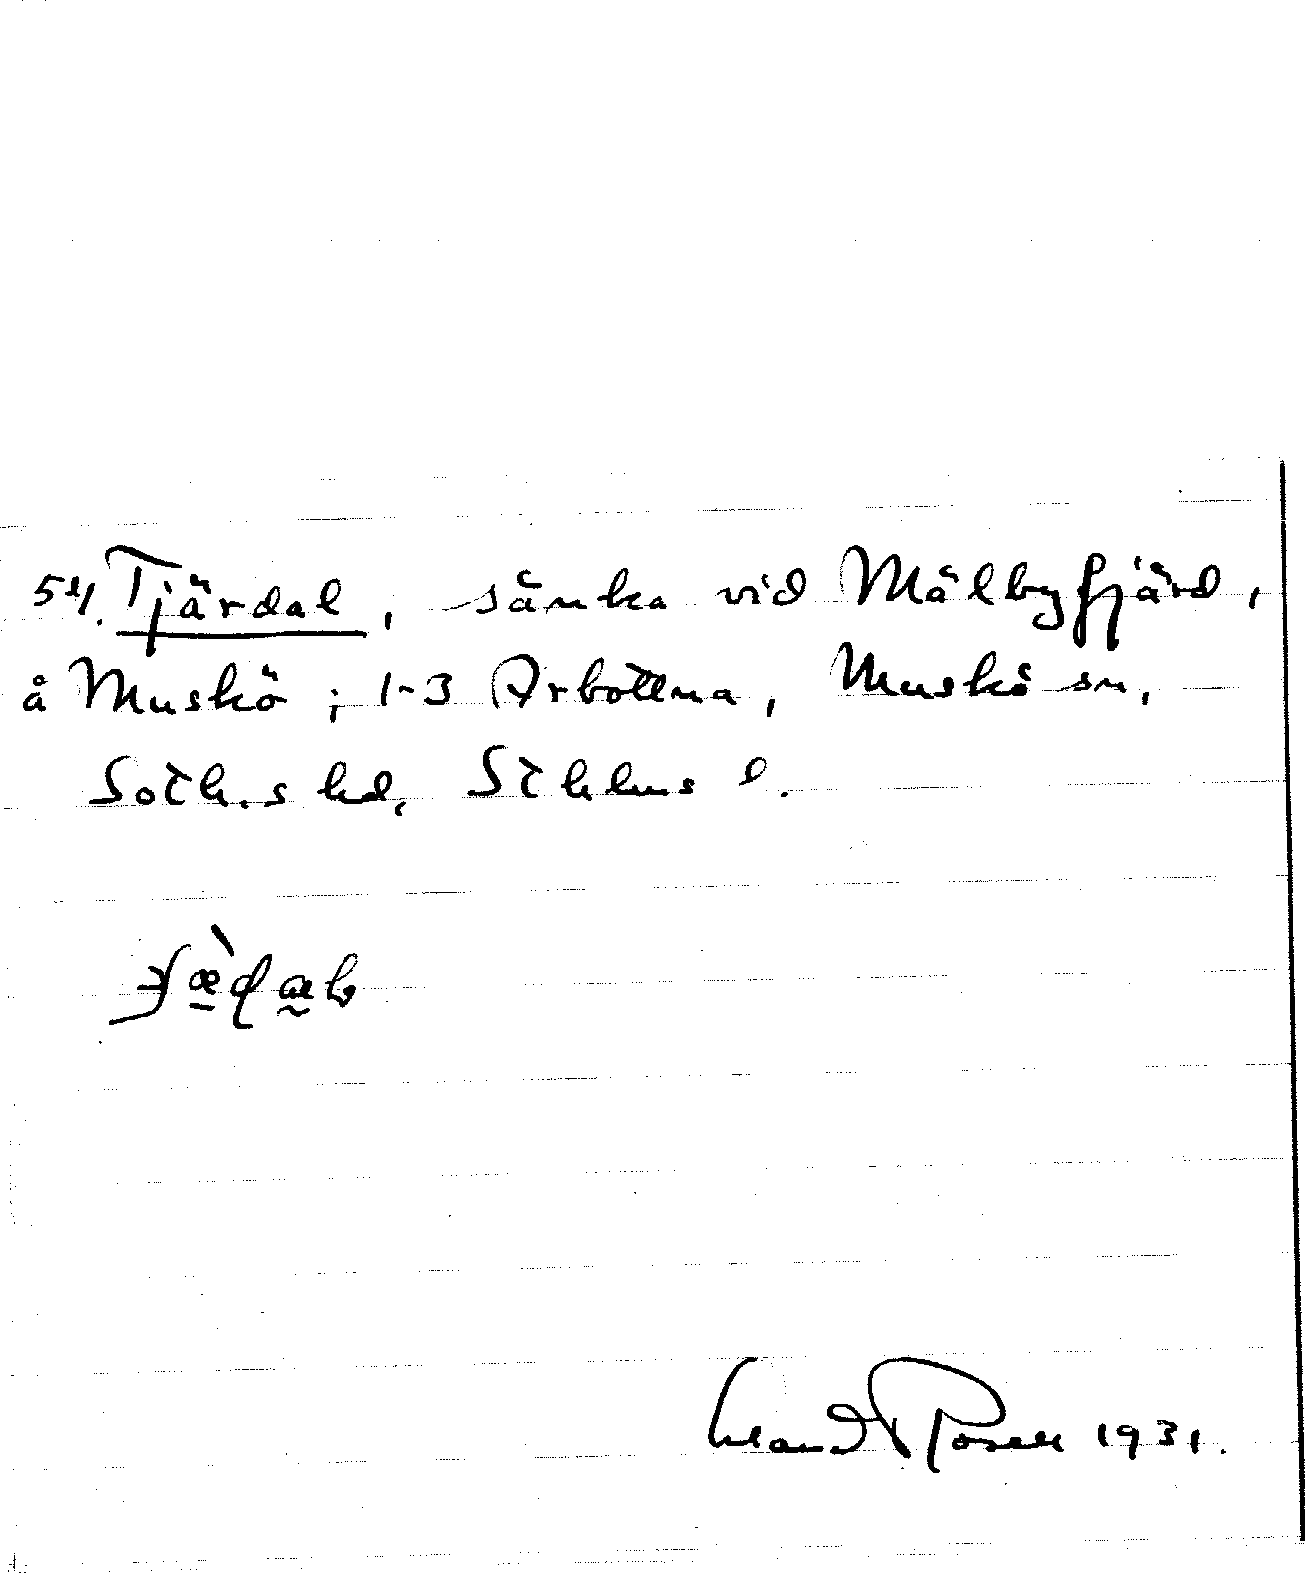 54. Tjärdal, sänka vid Mälbyfjärd,
å Muskö; 1-3 Arbottna, Muskö sn,
Soth.s hd, Sthlms l.
Erland Rosell 1931.